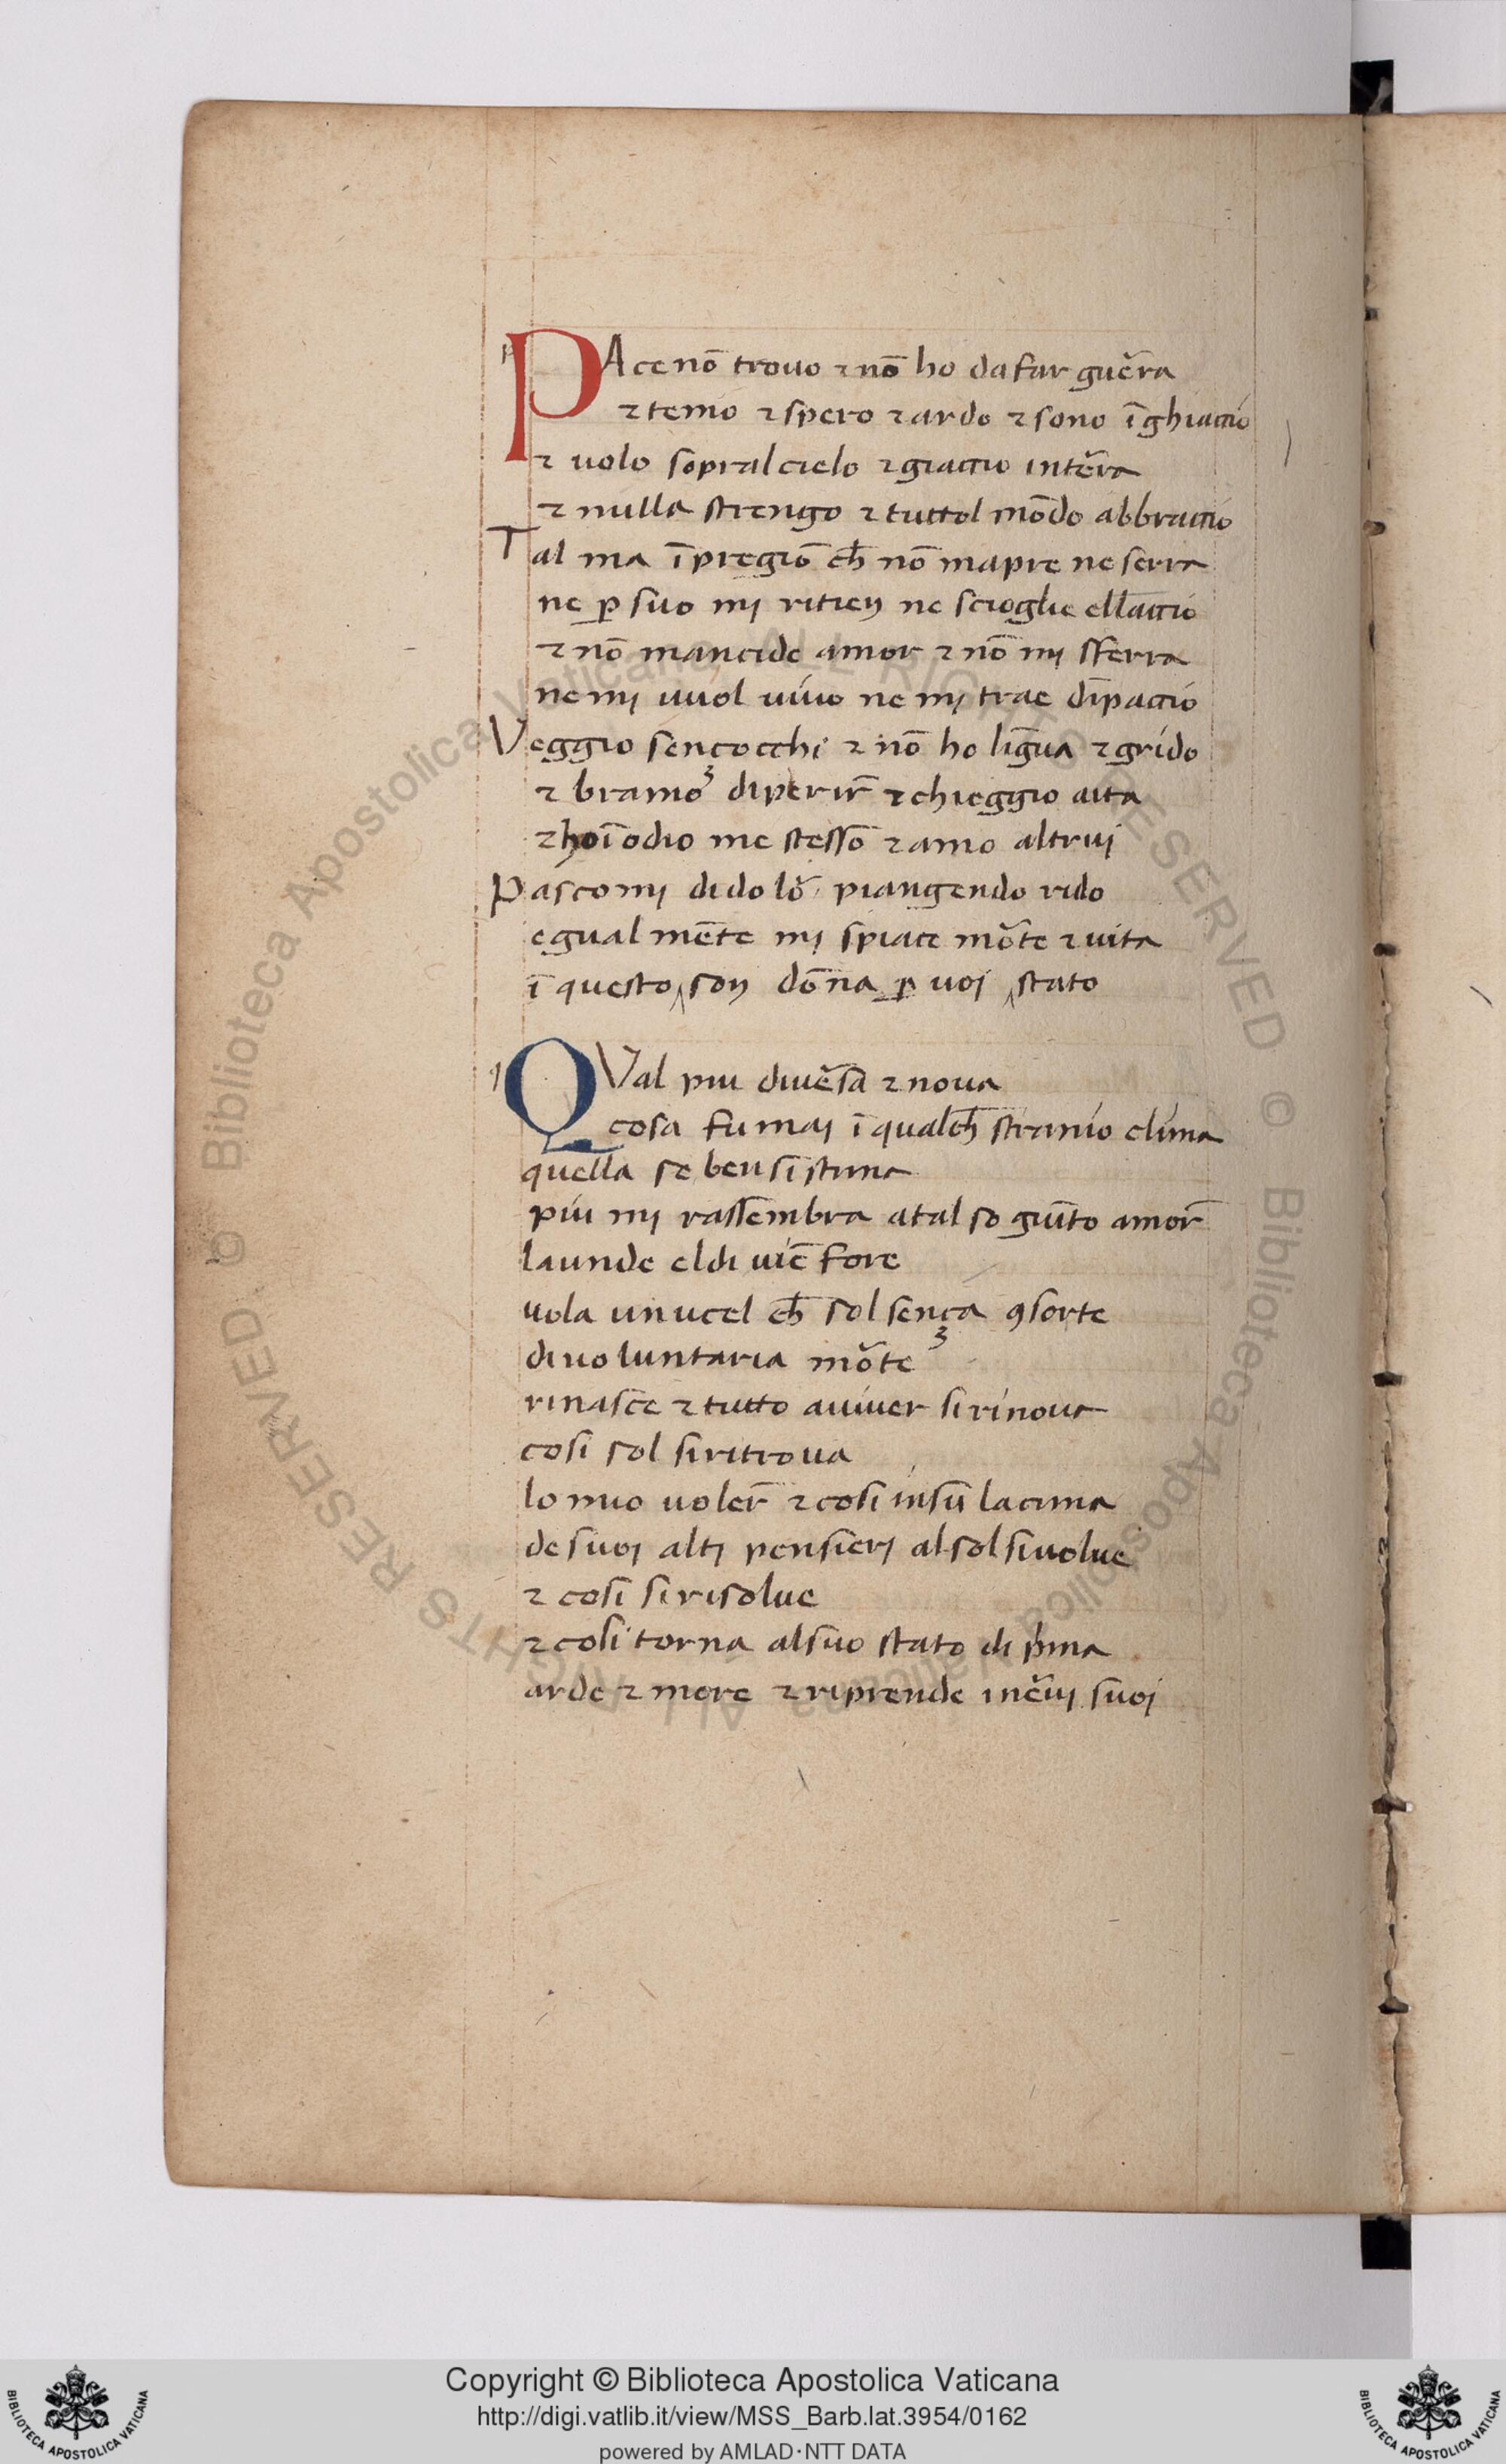 PAce nō trouo ⁊ nō ho da far guẽra
⁊ temo ⁊ spero ⁊ ardo ⁊ sono ī ghiaccio
⁊ uolo sopral cielo ⁊ giaccio in tẽra
⁊ nulla strengo ⁊ tuttol mōdo abbraccio
Tal ma ī pregiō cħ nō mapre ne serra
ne ꝑ suo mj ritien ne scioglie ellaccio
⁊ nō mancide amor ⁊ nō mj sferra
ne mj uuol uiuo ne mj trae dīpaccio
Veggio sençocchi ⁊ nō ho līgua ⁊ grido
⁊ bramo di perir̄ ⁊ chieggio aita
⁊ ho ī odio me stesso ⁊ amo altruj
Pascomj di dolõ piangendo rido
egual mēte mj spiace mõte ⁊ uita
ī questo son dōna ꝑ uoj stato
QVal piu diuẽsa ⁊ noua
cosa fu maj ī qualcħ stranio clima
quella se ben si stima
piu mj rassembra a tal so giūto amor̄
la unde el di uiē fore
uola un ucel cħ sol sença ꝯsorte
di uoluntaria mõte
rinasce ⁊ tutto a uiuer si rinoua
cosi sol si ritroua
lo mio uoler̄ ⁊ cosi in sū la cima
de suoj altj pensierj al sol si uolue
⁊ cosi si risolue
⁊ cosi torna al suo stato di pima
arde ⁊ more ⁊ riprende i nẽuj suoj
© Biblioteca Apostolica Vaticana ALL RIGHTS RESERVED © Biblioteca Apostolica Vaticana ALL RIGHTS RESERVED
Copyright © Biblioteca Apostolica Vaticana
http://digi.vatlib.it/view/MSS_Barb.lat.3954/0162
powered by AMLAD·NTT DATA
BIBLIOTECA APOSTOLICA VATICANA
BIBLIOTECA APOSTOLICA VATICANA